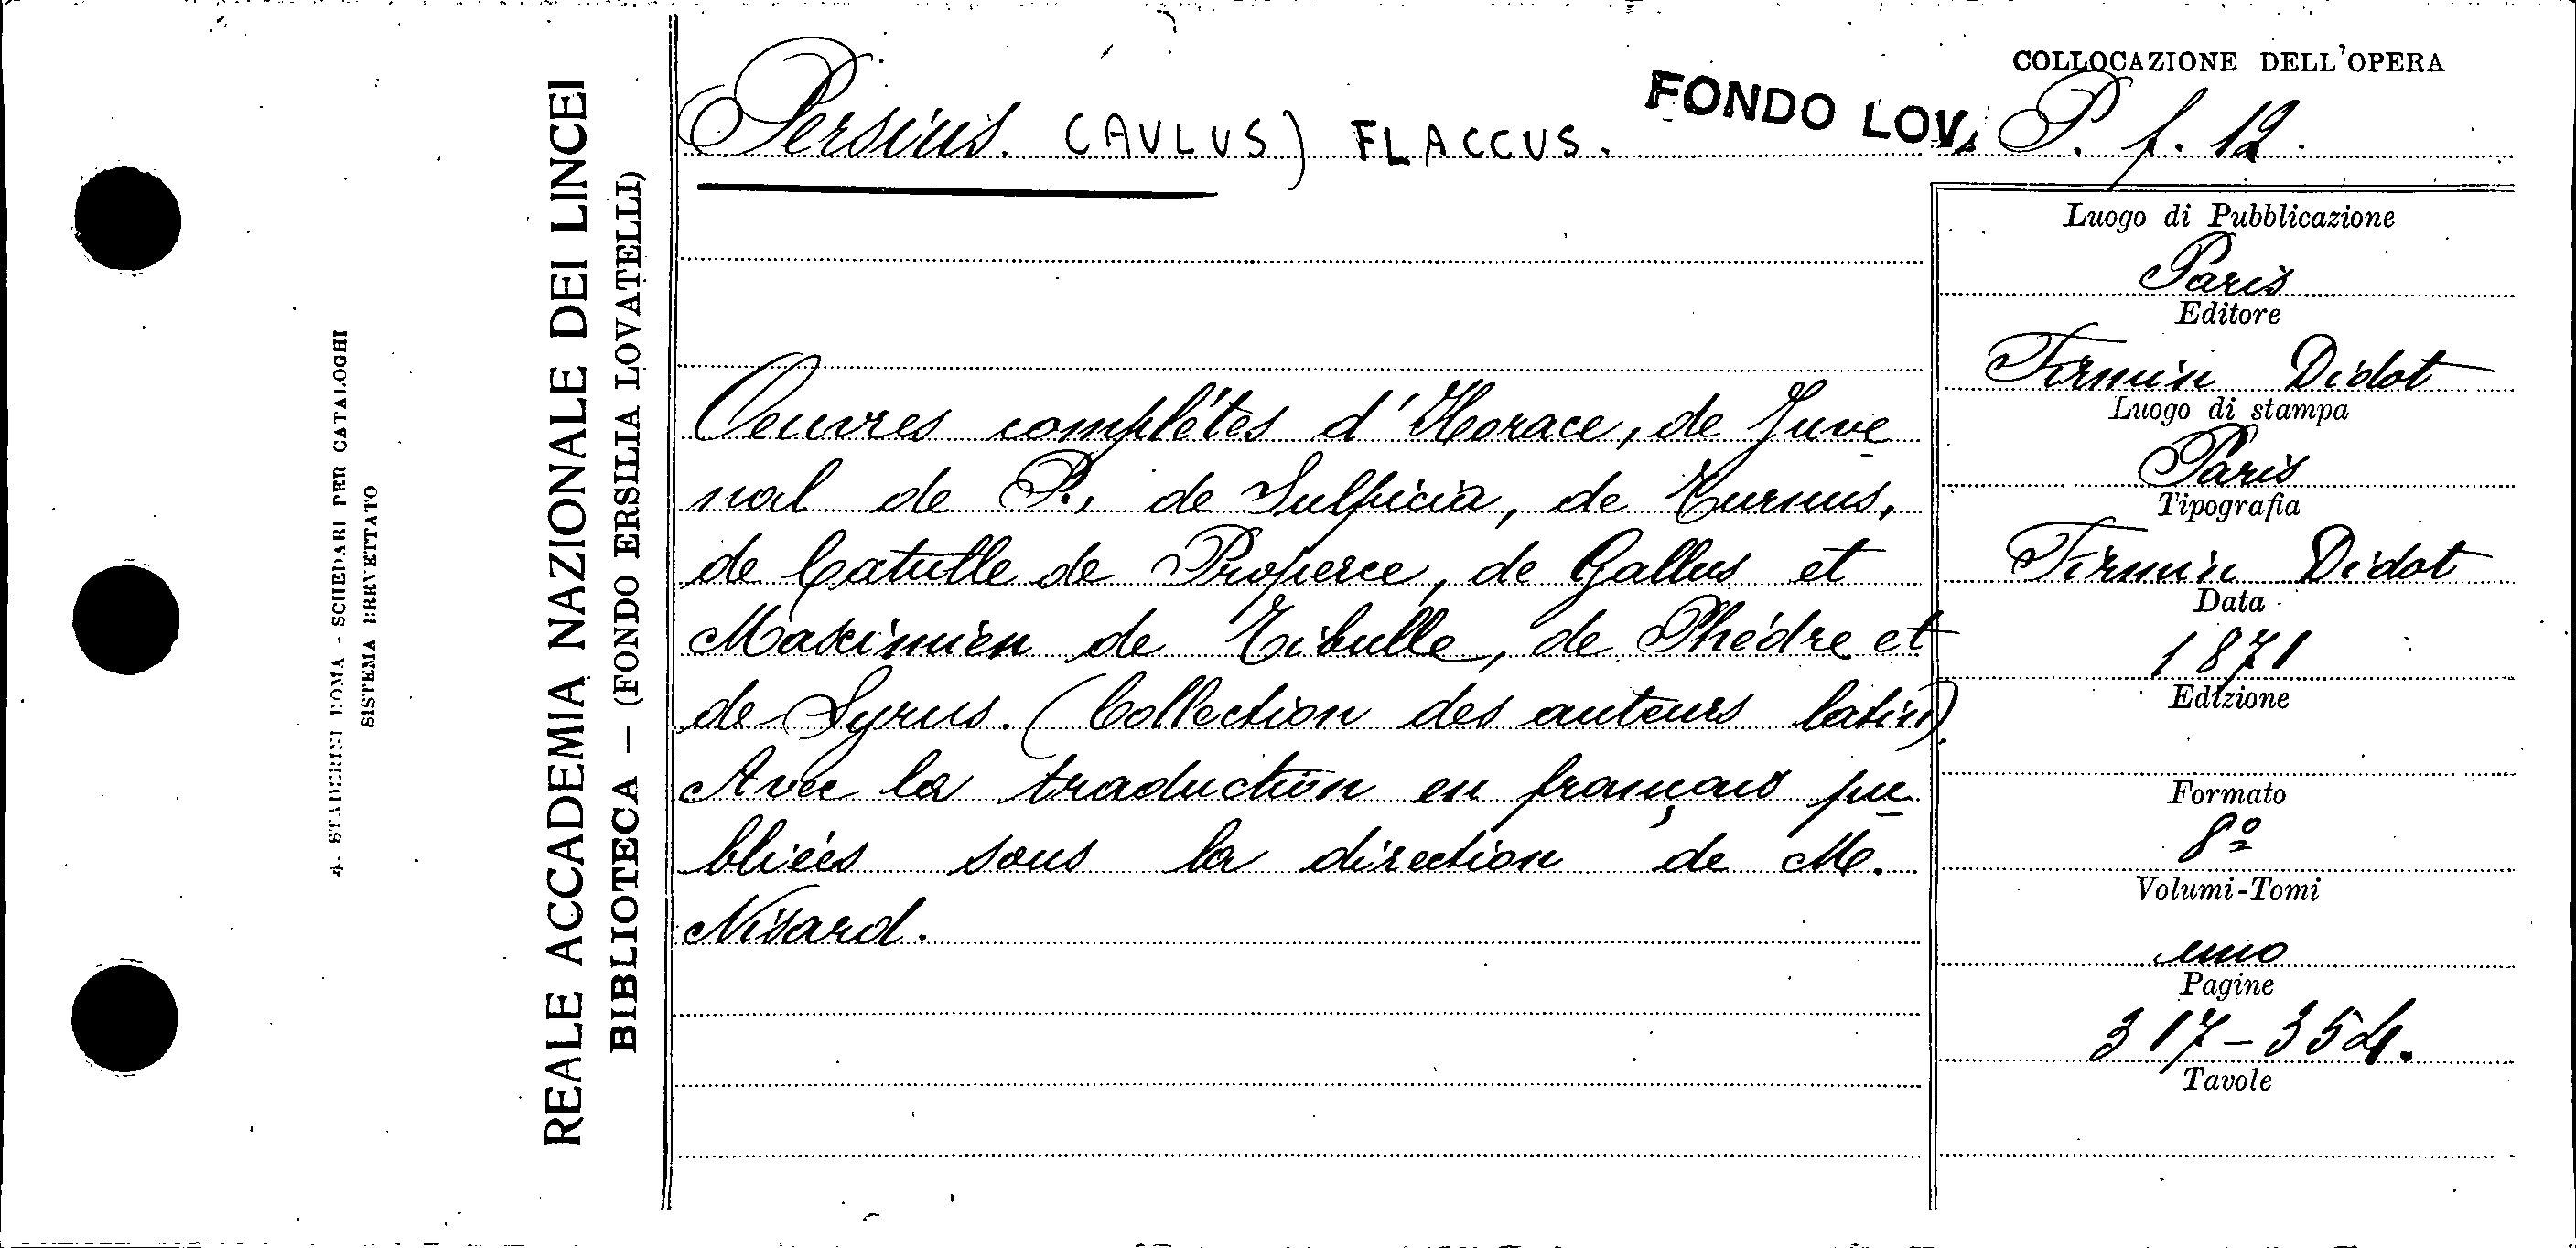 A. STADERINI ROMA - SCHEDARI PER CATALOGHI
SISTEMA BREVETTATO
REALE ACCADEMIA NAZIONALE DEI LINCEI
BIBLIOTECA — (FONDO ERSILIA LOVATELLI)
Persius. (AULUS) FLACCUS.
FONDO LOV.
Oeuvres complétes d'Horace, de Juve
nal de P., de Sulpicia, de Turnus,
de Catulle de Properce, de Gallus et
Maximien de Tibulle, de Phédre et
de Syrus. (Collection des auteurs latins).
Avec la traduction en français pu
bliées sous la direction de M.
Nisard.
COLLOCAZIONE DELL'OPERA
P. f. 12.
Luogo di Pubblicazione
Paris
Editore
Firmin Didot
Luogo di stampa
Paris
Tipografia
Firmin Didot
Data
1871
Edizione
Formato
8º
Volumi-Tomi
uno
Pagine
317-354.
Tavole